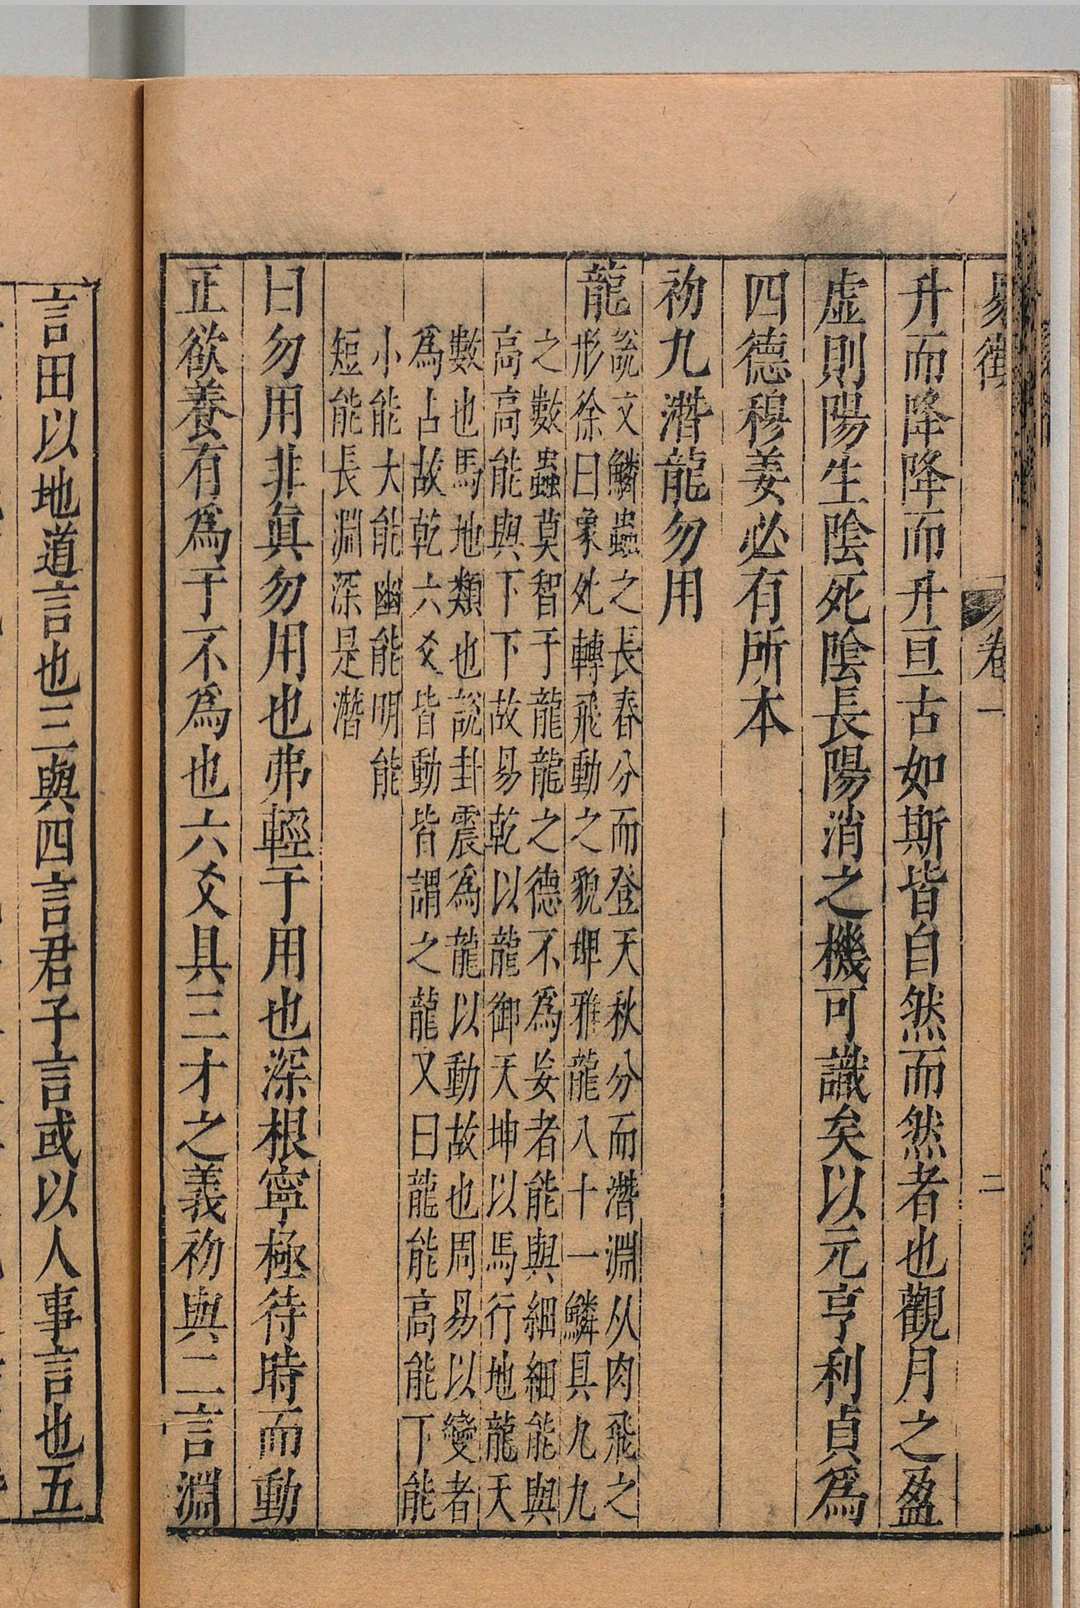 易徵 卷一 二
升而降降而升亘古如斯皆自然而然者也觀月之盈
虛則陽生陰死陰長陽消之機可識矣以元亨利貞爲
四德穆姜必有所本
初九潛龍勿用
龍
說文鱗蟲之長春分而登天秋分而潛淵从肉飛之
形徐曰象夗轉飛動之貌埤雅龍八十一鱗具九九
之數蟲莫智于龍龍之德不爲妄者能與細細能與
高高能與下下故易乾以龍御天坤以馬行地龍天
數也馬地類也說卦震爲龍以動故也周易以變者
爲占故乾六爻皆動皆謂之龍又曰龍能高能下能
小能大能幽能明能
短能長淵深是潛
曰勿用非眞勿用也弗輕于用也深根寧極待時而動
正欲養有爲于不爲也六爻具三才之義初與二言淵
言田以地道言也三與四言君子言或以人事言也五